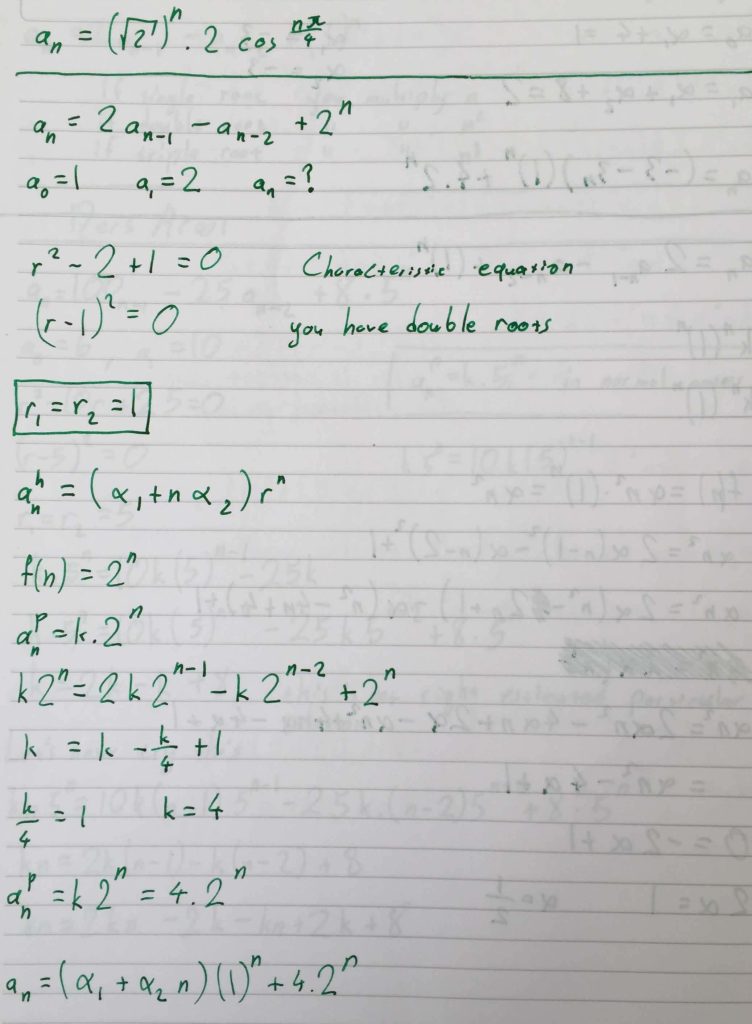 aₙ = (√2)ⁿ . 2 cos nπ/4
aₙ = 2 aₙ₋₁ − aₙ₋₂ + 2ⁿ
a₀ = 1 a₁ = 2 aₙ = ?
r² − 2 + 1 = 0 Characteristic equation
(r − 1)² = 0 you have double roots
r₁ = r₂ = 1
aₙʰ = (α₁ + n α₂) rⁿ
f(n) = 2ⁿ
aₙᵖ = k . 2ⁿ
k2ⁿ = 2k2ⁿ⁻¹ − k2ⁿ⁻² + 2ⁿ
k = k − k/4 + 1
k/4 = 1 k = 4
aₙᵖ = k2ⁿ = 4 . 2ⁿ
aₙ = (α₁ + α₂ n)(1)ⁿ + 4 . 2ⁿ